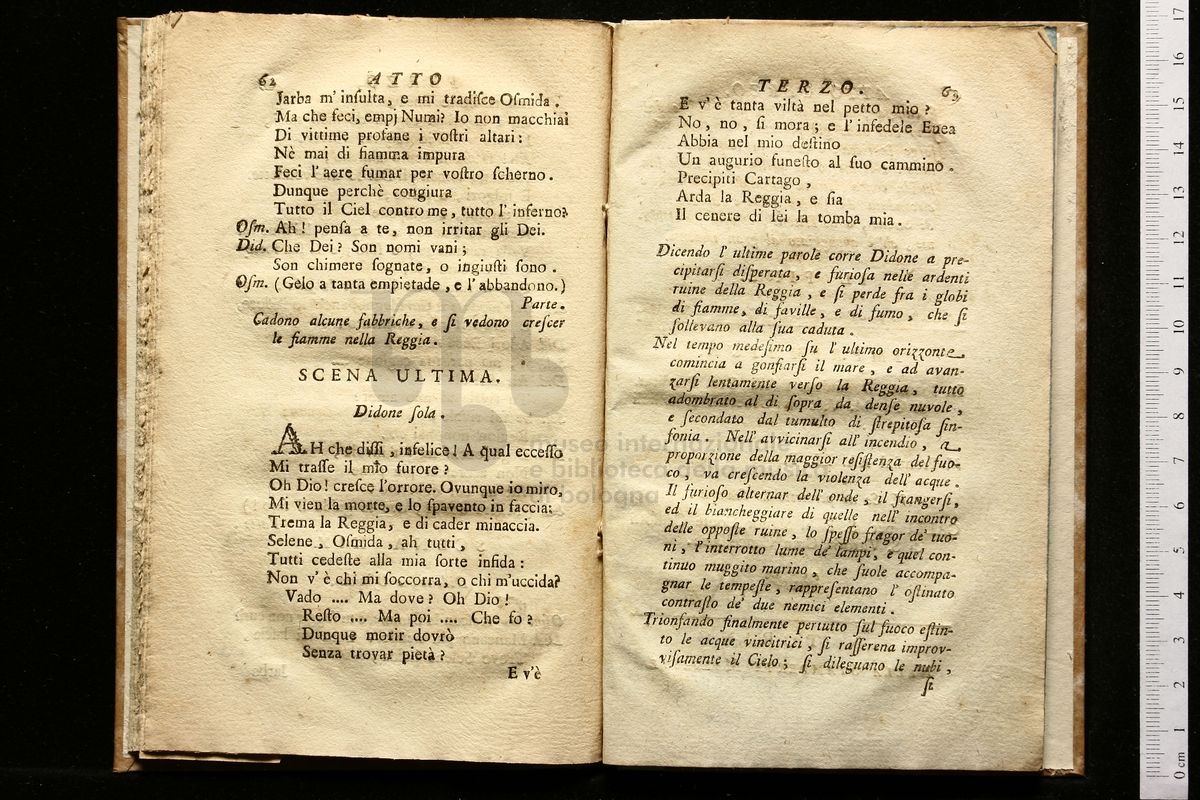 62 ATTO
Jarba m' inſulta, e mi tradiſce Oſmida.
Ma che feci, empj Numi? Io non macchiai
Di vittime profane i voſtri altari:
Nè mai di fiamma impura
Feci l' aere fumar per voſtro ſcherno.
Dunque perchè congiura
Tutto il Ciel contro me, tutto l' inferno?
Oſm. Ah! penſa a te, non irritar gli Dei.
Did. Che Dei? Son nomi vani;
Son chimere ſognate, o ingiuſti ſono.
Oſm. (Gelo a tanta empietade, e l' abbandono.)
Parte.
Cadono alcune fabbriche, e ſi vedono creſcer
le fiamme nella Reggia.
SCENA ULTIMA.
Didone ſola.
AH che diſſi, infelice! A qual ecceſſo
Mi traſſe il mio furore?
Oh Dio! creſce l'orrore. Ovunque io miro,
Mi vien la morte, e lo ſpavento in faccia:
Trema la Reggia, e di cader minaccia.
Selene, Oſmida, ah tutti,
Tutti cedeſte alla mia ſorte infida:
Non v' è chi mi ſoccorra, o chi m'uccida?
Vado .... Ma dove? Oh Dio!
Reſto .... Ma poi .... Che fo?
Dunque morir dovrò
Senza trovar pietà?
E v'è
TERZO. 63
E v'è tanta viltà nel petto mio?
No, no, ſi mora; e l' infedele Enea
Abbia nel mio deſtino
Un augurio funeſto al ſuo cammino.
Precipiti Cartago,
Arda la Reggia, e ſia
Il cenere di lei la tomba mia.
Dicendo l' ultime parole corre Didone a pre-
cipitarſi diſperata, e furioſa nelle ardenti
ruine della Reggia, e ſi perde fra i globi
di fiamme, di faville, e di fumo, che ſi
ſollevano alla ſua caduta.
Nel tempo medeſimo ſu l' ultimo orizzonte
comincia a gonfiarſi il mare, e ad avan-
zarſi lentamente verſo la Reggia, tutto
adombrato al di ſopra da denſe nuvole,
e ſecondato dal tumulto di ſtrepitoſa ſin-
fonia. Nell' avvicinarſi all' incendio, a
proporzione della maggior reſiſtenza del fuo-
co, va creſcendo la violenza dell' acque.
Il furioſo alternar dell' onde, il frangerſi,
ed il biancheggiare di quelle nell' incontro
delle oppoſte ruine, lo ſpeſſo fragor de' tuo-
ni, l'interrotto lume de' lampi, e quel con-
tinuo muggito marino, che ſuole accompa-
gnar le tempeſte, rappreſentano l' oſtinato
contraſto de' due nemici elementi.
Trionfando finalmente pertutto ſul fuoco eſtin-
to le acque vincitrici, ſi raſſerena improv-
viſamente il Cielo; ſi dileguano le nubi,
ſi
museo internazionale
e biblioteca della musica
di bologna
0 cm 1 2 3 4 5 6 7 8 9 10 11 12 13 14 15 16 17